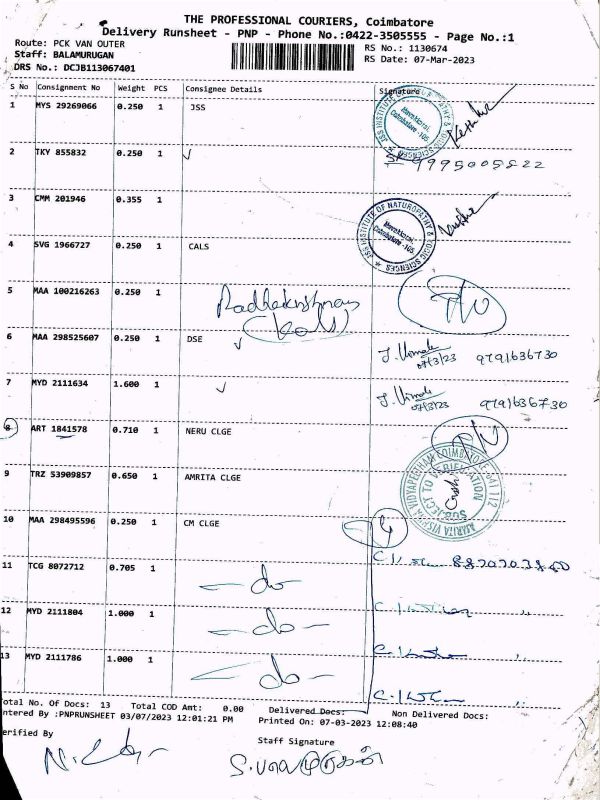 THE PROFESSIONAL COURIERS, Coimbatore
Delivery Runsheet - PNP - Phone No.:0422-3505555 - Page No.:1
Route: PCK VAN OUTER
RS No.: 1130674
Staff: BALAMURUGAN
RS Date: 07-Mar-2023
DRS No.: DCJB113067401
S No Consignment No Weight PCS Consignee Details Signature
1 MYS 29269066 0.250 1 JSS
JSS INSTITUTE OF NATUROPATHY & YOGIC SCIENCES Coimbatore -105
2 TKY 855832 0.250 1 ✓
3 CMM 201946 0.355 1
JSS INSTITUTE OF NATUROPATHY & YOGIC SCIENCES Coimbatore -105
4 SVG 1966727 0.250 1 CALS
5 MAA 100216263 0.250 1 Radhakrishnan
6 MAA 298525607 0.250 1 DSE ✓ 07/3/23 9791636730
7 MYD 2111634 1.600 1 ✓ 07/3/23 9791636730
8 ART 1841578 0.710 1 NERU CLGE
9 TRZ 53909857 0.650 1 AMRITA CLGE
AMRITA VISHWA VIDYAPEETHAM COIMBATORE - 641 112 SUBJECT TO VERIFICATION
10 MAA 298495596 0.250 1 CM CLGE
11 TCG 8072712 0.705 1 - do -
12 MYD 2111804 1.000 1 - do - ,,
13 MYD 2111786 1.000 1 - do - ,,
Total No. Of Docs: 13 Total COD Amt: 0.00 Delivered Docs: Non Delivered Docs:
ntered By :PNPRUNSHEET 03/07/2023 12:01:21 PM Printed On: 07-03-2023 12:08:40
erified By Staff Signature
S.பாலமுருகன்